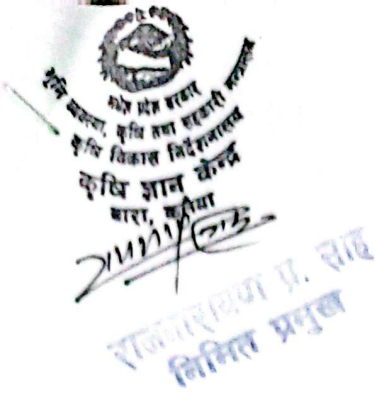 मधेश प्रदेश सरकार
भूमि व्यवस्था, कृषि तथा सहकारी मन्त्रालय
कृषि विकास निर्देशनालय
कृषि ज्ञान केन्द्र
बारा, कलैया
राजनारायण प्र. साह
निमित प्रमुख